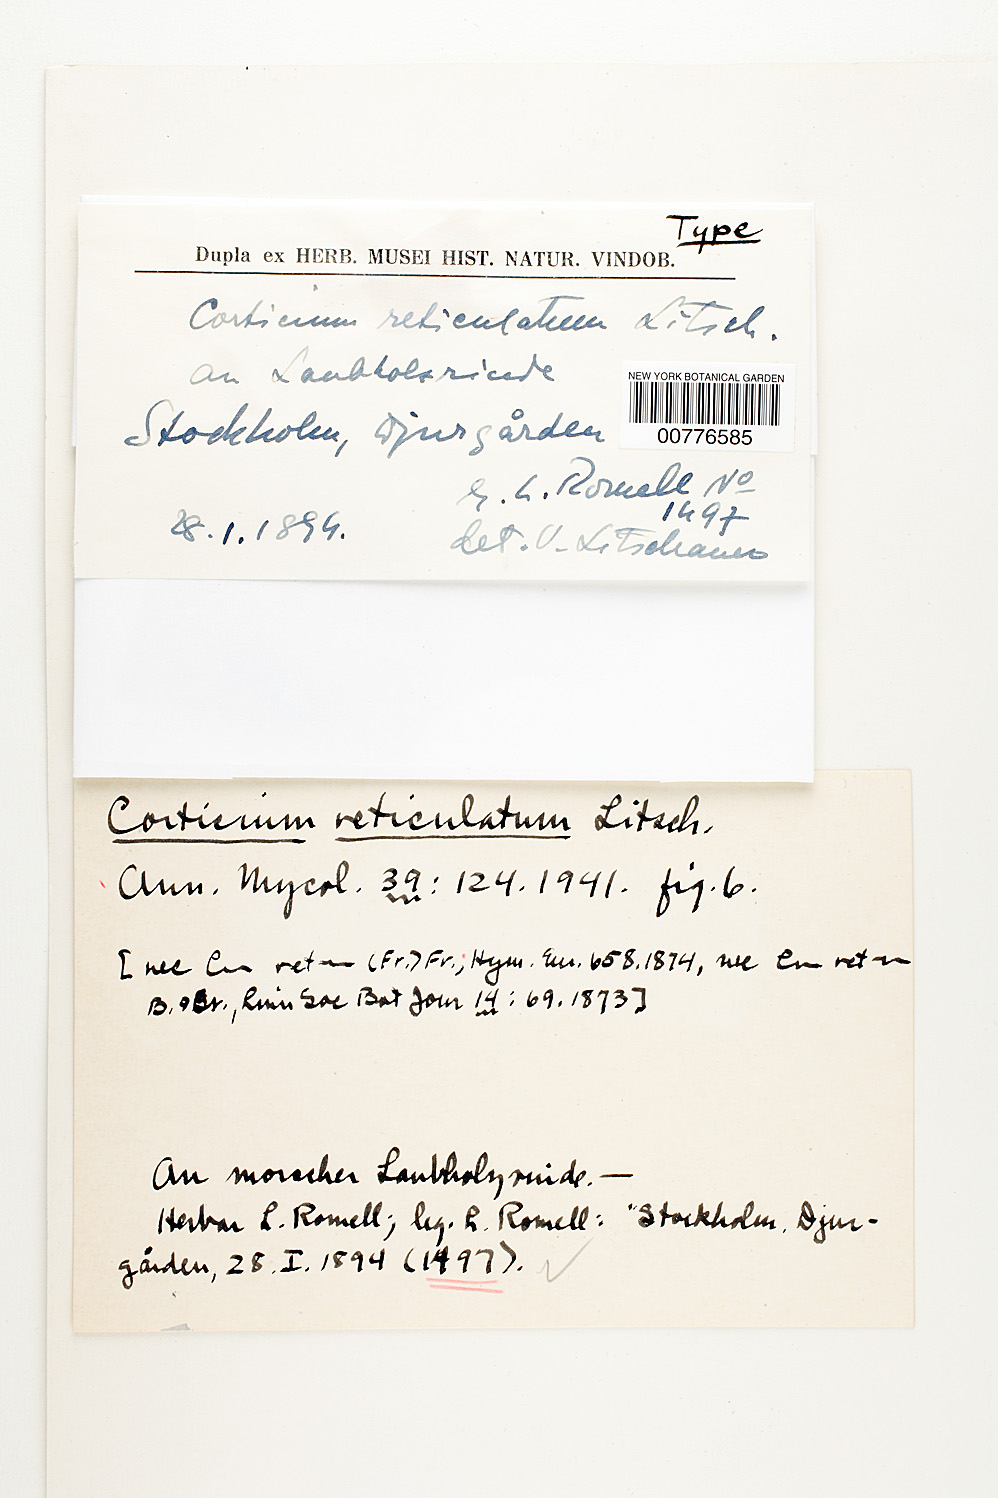 Type
Dupla ex HERB. MUSEI HIST. NATUR. VINDOB.
Corticium reticulatum Litsch.
an Laubholzrinde
NEW YORK BOTANICAL GARDEN
00776585
Stockholm, Djurgården
L. Romell No
1497
28.1.1894.
det. V. Litschauer
Corticium reticulatum Litsch.
Ann. Mycol. 39: 124. 1941. fig. 6.
[nec (Fr.) Fr.; Hym. Eur. 658. 1874, nec
B. & Br., Linn Soc Bot Jour 14: 69. 1873]
An morscher Laubholzrinde. —
Herbar L. Romell; leg. L. Romell: "Stockholm, Djur-
gården, 28. I. 1894 (1497).